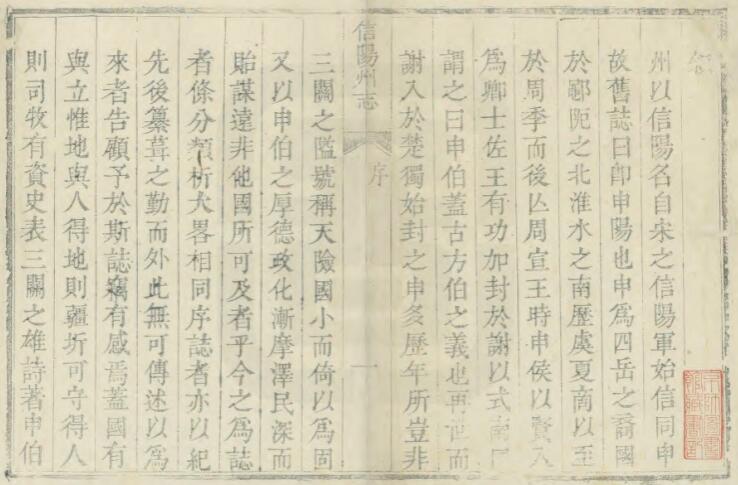 州以信陽名自宋之信陽軍始信同申
故舊誌曰卽申陽也申爲四岳之裔國
於鄳阨之北淮水之南歷虞夏商以至
於周季而後亾周宣王時申侯以賢入
爲卿士佐王有功加封於謝以式南
謂之曰申伯蓋古方伯之義也再世而
謝入於楚獨始封之申多歷年所豈非
信陽州志
序
一
三關之隘號稱天險國小而倚以爲固
又以申伯之厚德政化漸摩澤民深而
貽謀遠非他國所可及者乎今之爲誌
者條分類析大畧相同序誌者亦以紀
先後纂葺之勤而外此無可傳述以爲
來者告顧予於斯誌竊有感焉蓋國有
與立惟地與人得地則疆圻可守得人
則司牧有資史表三關之雄詩著申伯